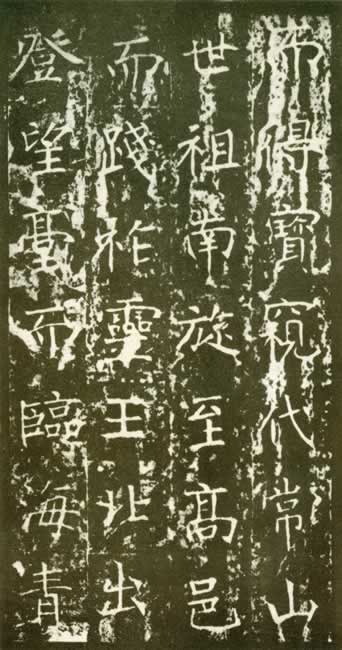 而得寶窺代常山
世祖南旋至髙邑
而踐祚靈王北出
登望臺而臨海青